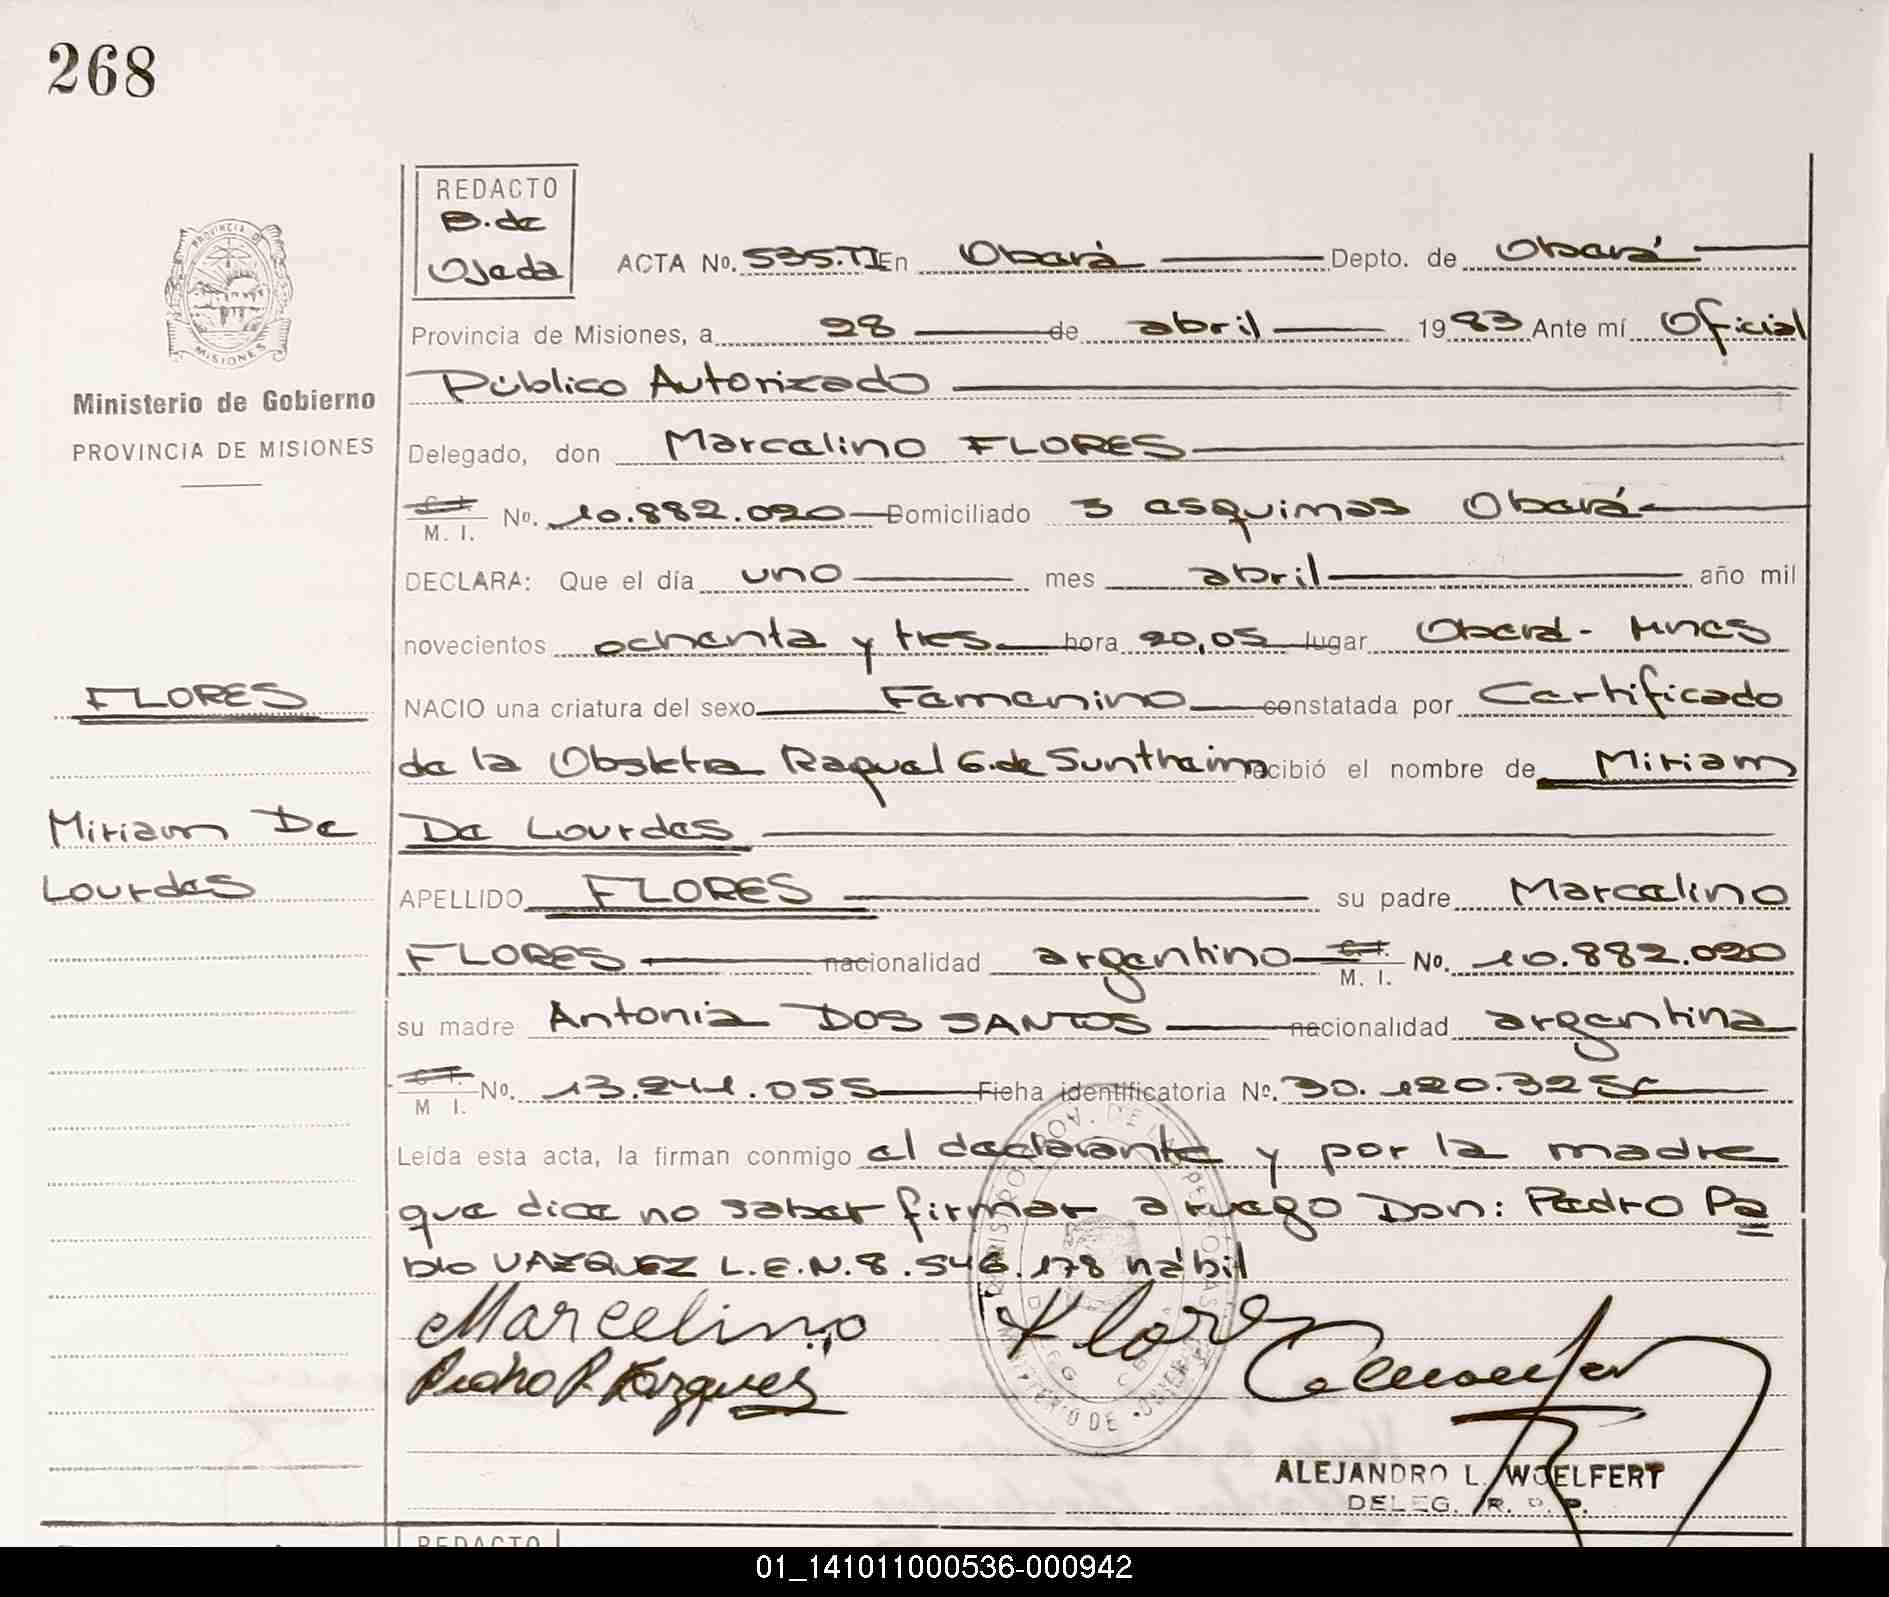 268
REDACTO
B. de
Ojeda
ACTA No. 535.TI En Oberá Depto. de Oberá
PROVINCIA DE
MISIONES
Provincia de Misiones, a 28 de abril 1983 Ante mí Oficial
Público Autorizado
Ministerio de Gobierno
PROVINCIA DE MISIONES
Delegado, don Marcelino FLORES
C. I.
M. I. No. 10.882.020 Domiciliado 3 esquinas Oberá
DECLARA: Que el día uno mes abril año mil
novecientos ochenta y tres hora 20,05 lugar Oberá - Mnes
FLORES
NACIO una criatura del sexo Femenino constatada por Certificado
de la Obstetra Raquel G. de Suntheim recibió el nombre de Miriam
Miriam De
Lourdes
De Lourdes
APELLIDO FLORES su padre Marcelino
FLORES nacionalidad argentino C. I. M. I. No. 10.882.020
su madre Antonia DOS SANTOS nacionalidad argentina
C. I. M I. No. 13.241.055 Ficha identificatoria No. 30.120.325
Leída esta acta, la firman conmigo el declarante y por la madre
que dice no saber firmar a ruego Don: Pedro Pa
blo VAZQUEZ L.E.N. 8.546.178 hábil
Marcelino Flores
Pedro P. Vazquez
ALEJANDRO L. WOELFERT
DELEG. R. P. P.
REDACTO
01_141011000536-000942